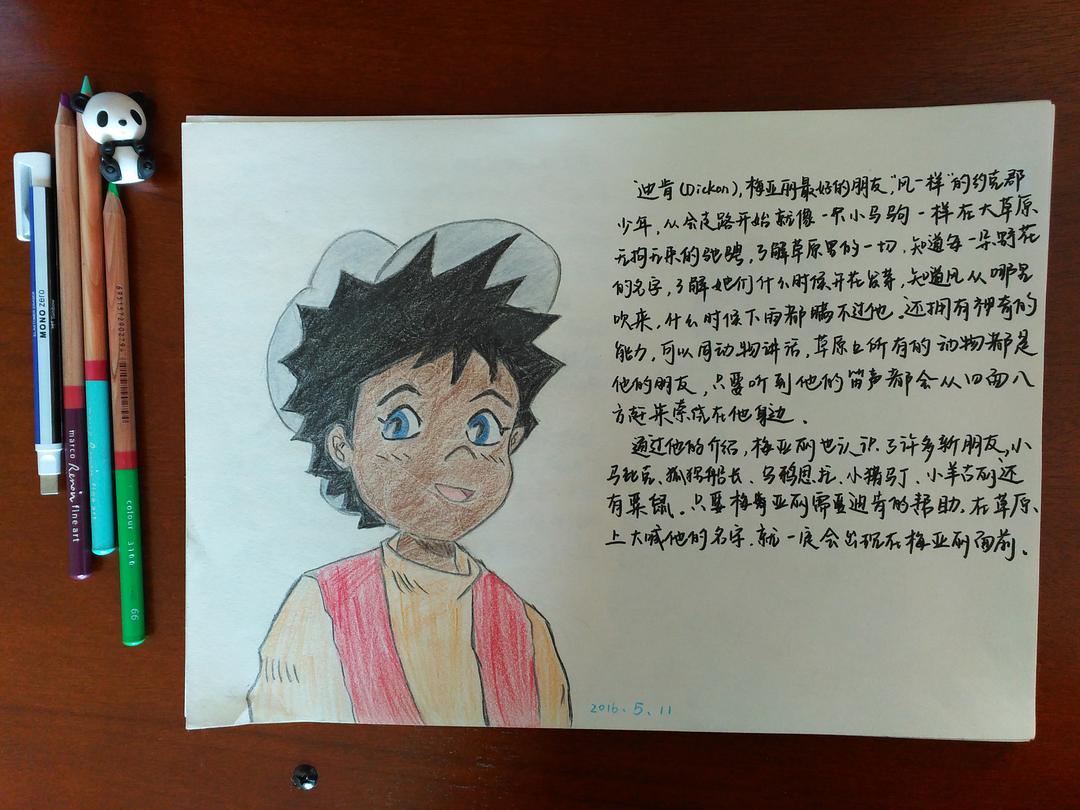 迪肯(Dickon),梅亚丽最好的朋友,"风一样"的约克郡
少年,从会走路开始就像一只小马驹一样在大草原
无拘无束的驰骋,了解草原里的一切,知道每一朵野花
的名字,了解她们什么时候开花发芽,知道风从哪里
吹来,什么时候下雨都瞒不过他。还拥有神奇的
能力,可以同动物讲话,草原上所有的动物都是
他的朋友,只要听到他的笛声都会从四面八
方赶来萦绕在他身边.
通过他的介绍,梅亚丽也认识了许多新朋友,小
马 狐狸船长、乌鸦恩 、小猪马丁、小羊 还
有栗鼠。只要梅 亚丽需要迪肯的帮助,在草原
上大喊他的名字.就一定会出现在梅亚丽面前、
2016.5.11
MONO zero
marco Renoir fine art
colour 3100 66